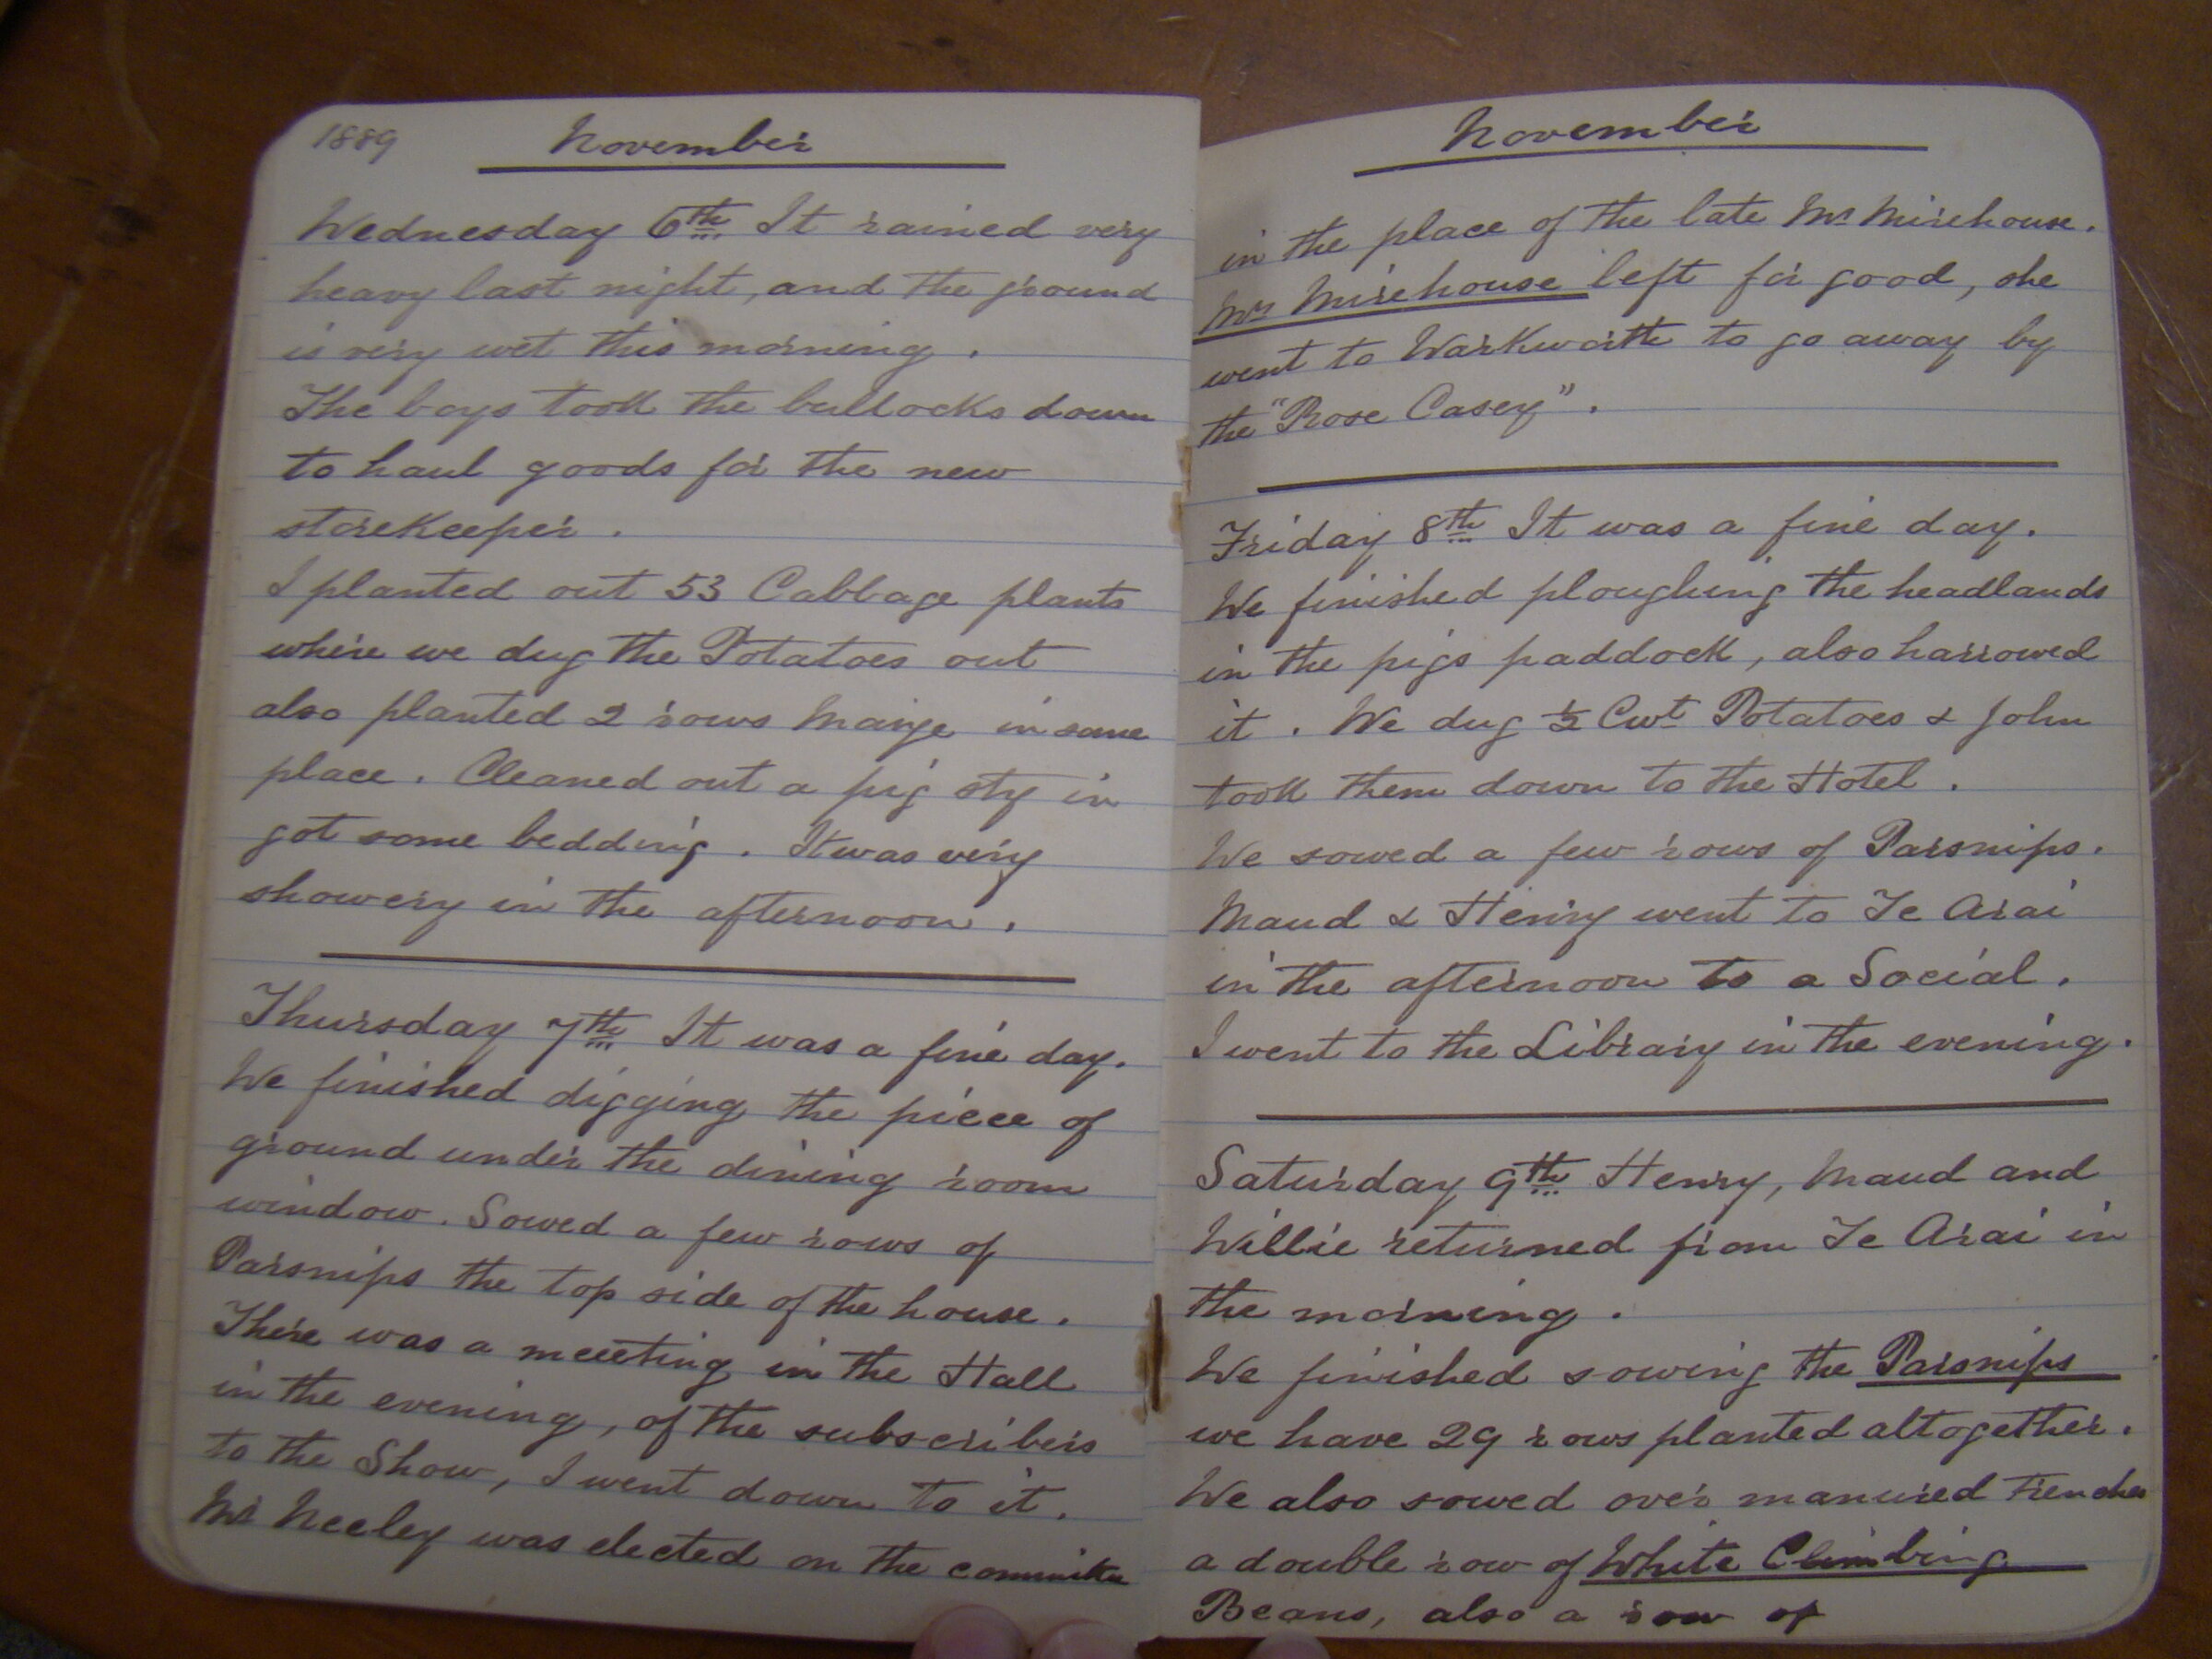 1889
November
Wednesday 6th It rained very
heavy last night, and the ground
is very wet this morning.
The boys took the bullocks down
to haul goods for the new
storekeeper.
I planted out 53 Cabbage plants
where we dug the Potatoes out
also planted 2 rows Maize in same
place. Cleaned out a pig sty in
got some bedding. It was very
showery in the afternoon.
Thursday 7th It was a fine day.
We finished digging the piece of
ground under the dining room
window. Sowed a few rows of
Parsnips the top side of the house.
There was a meeting in the Hall
in the evening, of the subscribers
to the Show, I went down to it.
Mr Neeley was elected on the committee
November
in the place of the late Mr Mirehouse.
Mrs Mirehouse left for good, she
went to Warkworth to go away by
the "Rose Casey".
Friday 8th It was a fine day.
We finished ploughing the headlands
in the pigs paddock, also harrowed
it. We dug ½ Cwt Potatoes & John
took them down to the Hotel.
We sowed a few rows of Parsnips.
Maud & Henry went to Te Arai
in the afternoon to a Social.
I went to the Library in the evening.
Saturday 9th Henry, Maud and
Willie returned from Te Arai in
the morning.
We finished sowing the Parsnips
we have 29 rows planted altogether.
We also sowed over manured trenches
a double row of White Climbing
Beans, also a row of